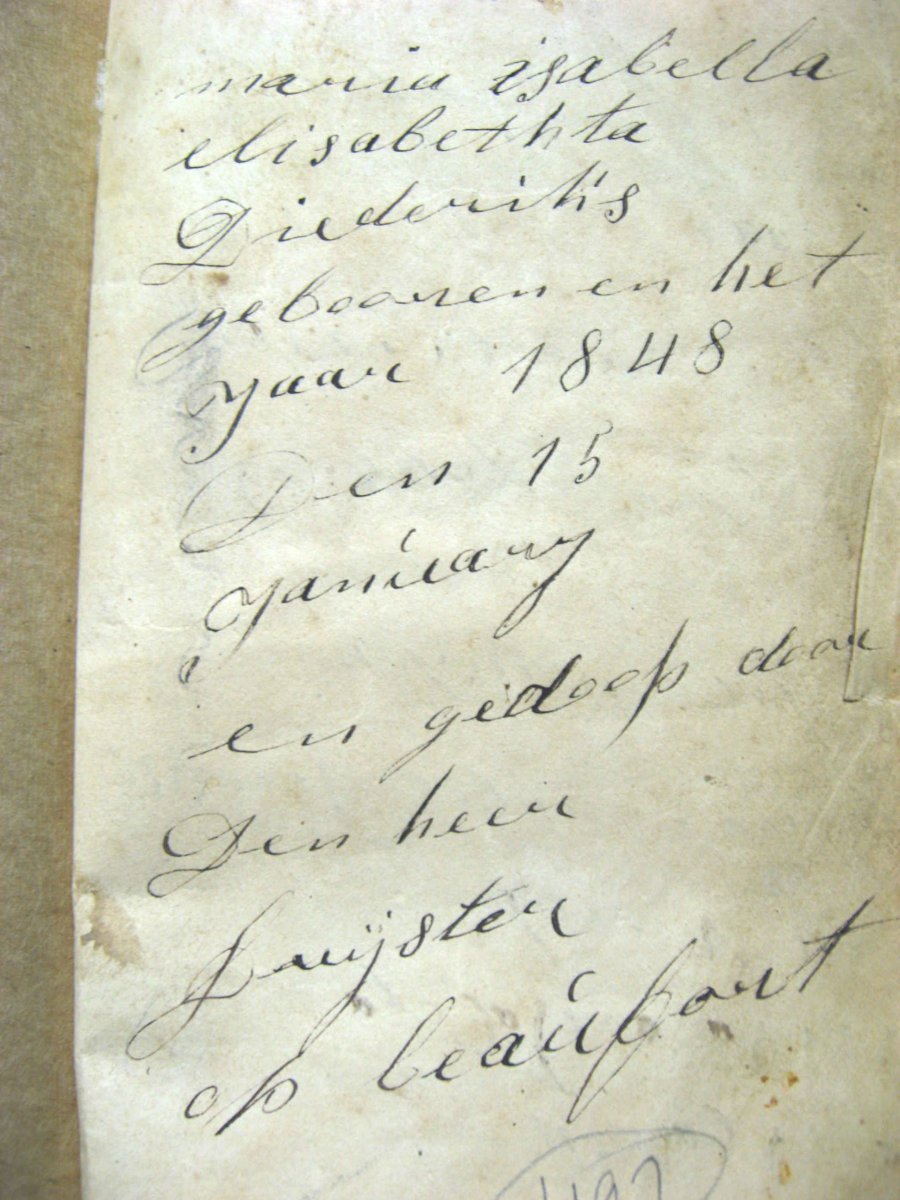 maria isabella
elisabethta
Diederiks
gebooren en het
yaar 1848
Den 15
yanúary
en gedoop door
Den heer
op beaúfort